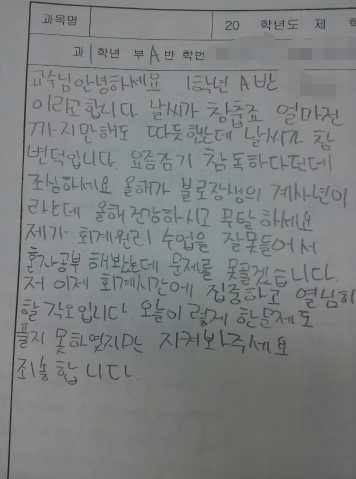 과목명
20 학년도 제 학
과 학년 부 A 반 학번
교수님안녕하세요 1학년 A반
이라고합니다 날씨가 참춥죠 얼마전
까지만해도 따뜻했는데 날씨가 참
변덕입니다 요즘감기 참독하다던데
조심하세요 올해가 불로장생의 계사년이
라는데 올해 건강하시고 무탈하세요
제가 회계원리 수업을 잘못들어서
혼자공부 해봤는데 문제를 못풀겠습니다.
저 이제 회계시간에 집중하고 열심히
할 각오입니다 오늘이 렇게 한문제도
풀지 못하였지만 지켜봐주세요
죄송합니다